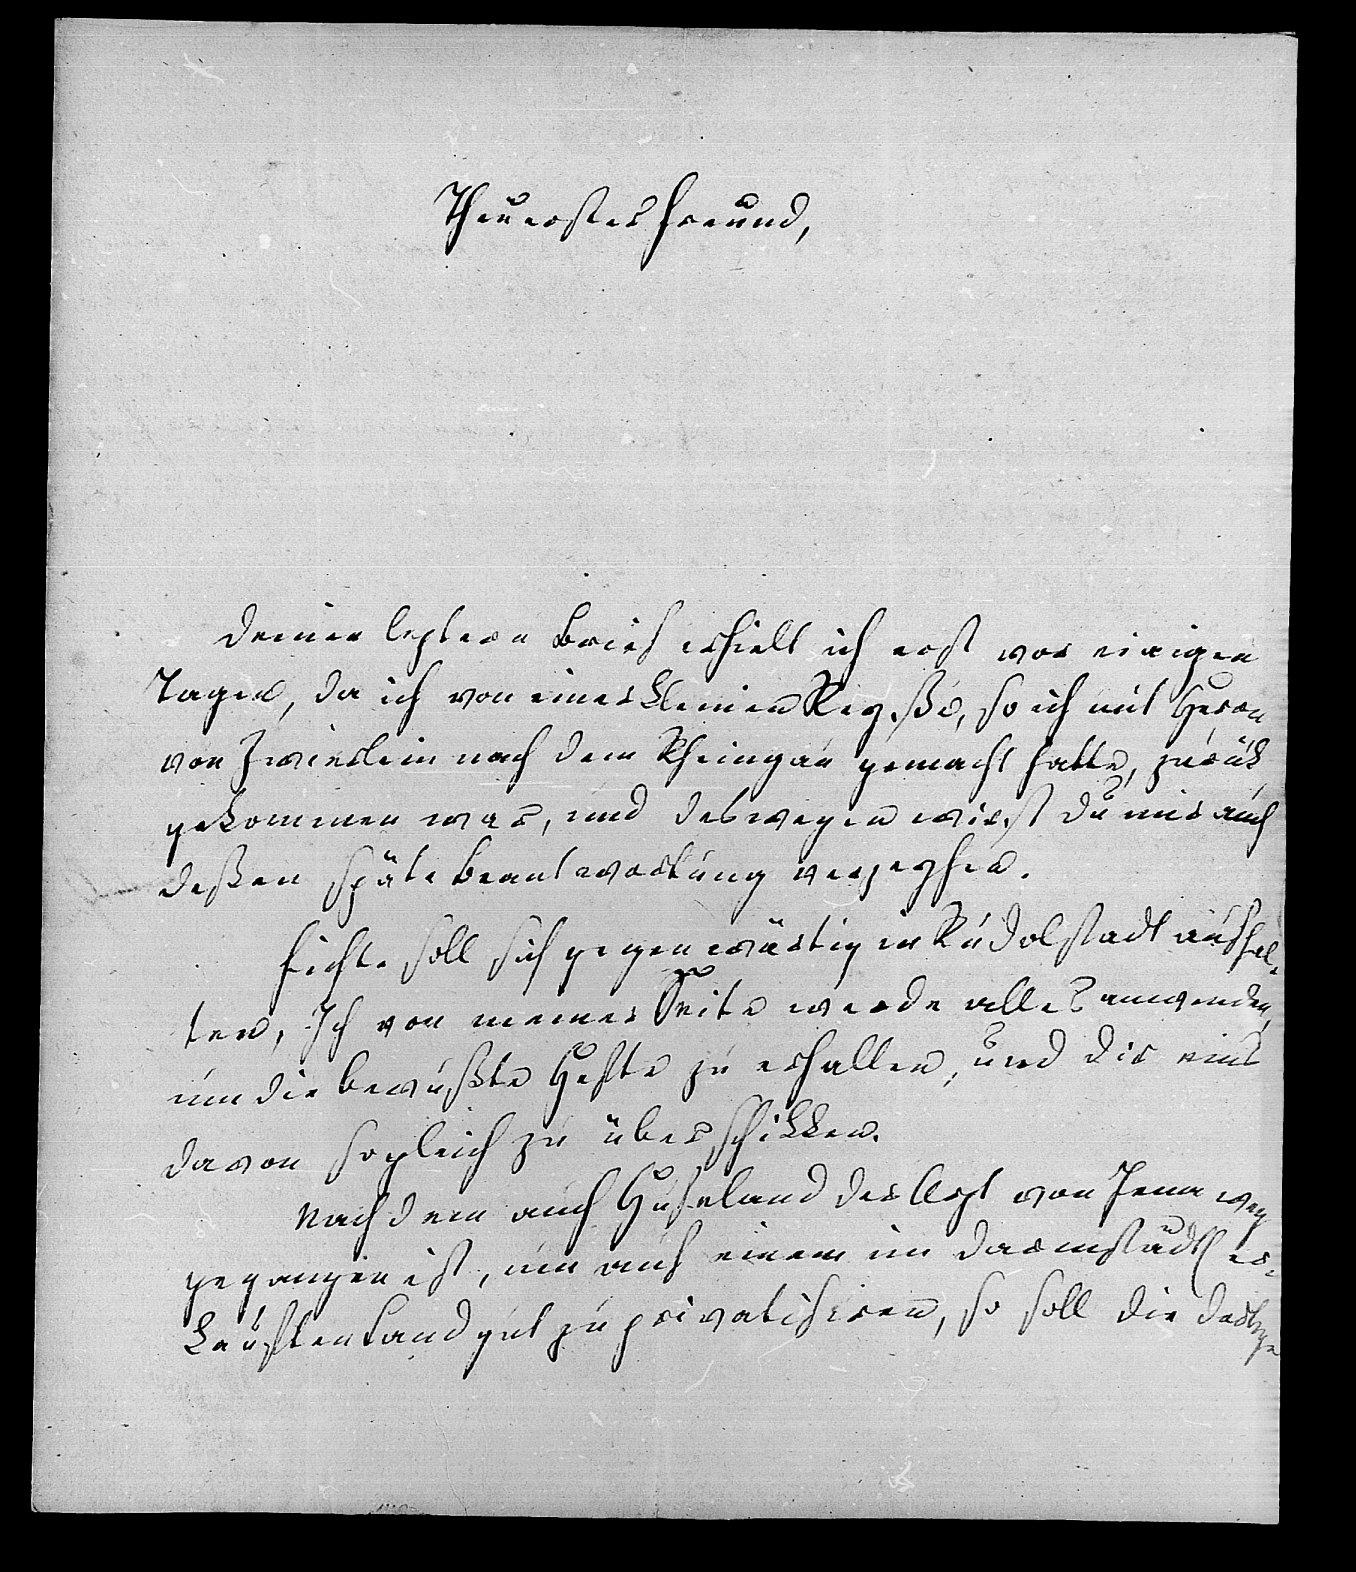 Theuerster Freund,
Deinen leztern Brief erhielt ich erst vor einigen
Tagen, da ich von einer kleinen Reyße, so ich mit Herrn
von Zwierlein nach dem Rheingau gemacht hatte, zurük
gekommen war, und deswegen wirst du mir auch
deßen späte Beantwortung verzeyhen.
Fichte soll sich gegenwärtig in Rudolstadt aufhal-
ten, Ich von meiner Seite werde alles anwenden,
um die bewußte Hefte zu erhalten, und dir eins
davon sogleich zu überschikken.
Nachdem auch Hufeland der Arzt von Jena weg
gegangen ist, um auf einem im Darmstädt er-
kauften Landgut zu privatisiren, so soll die dortige